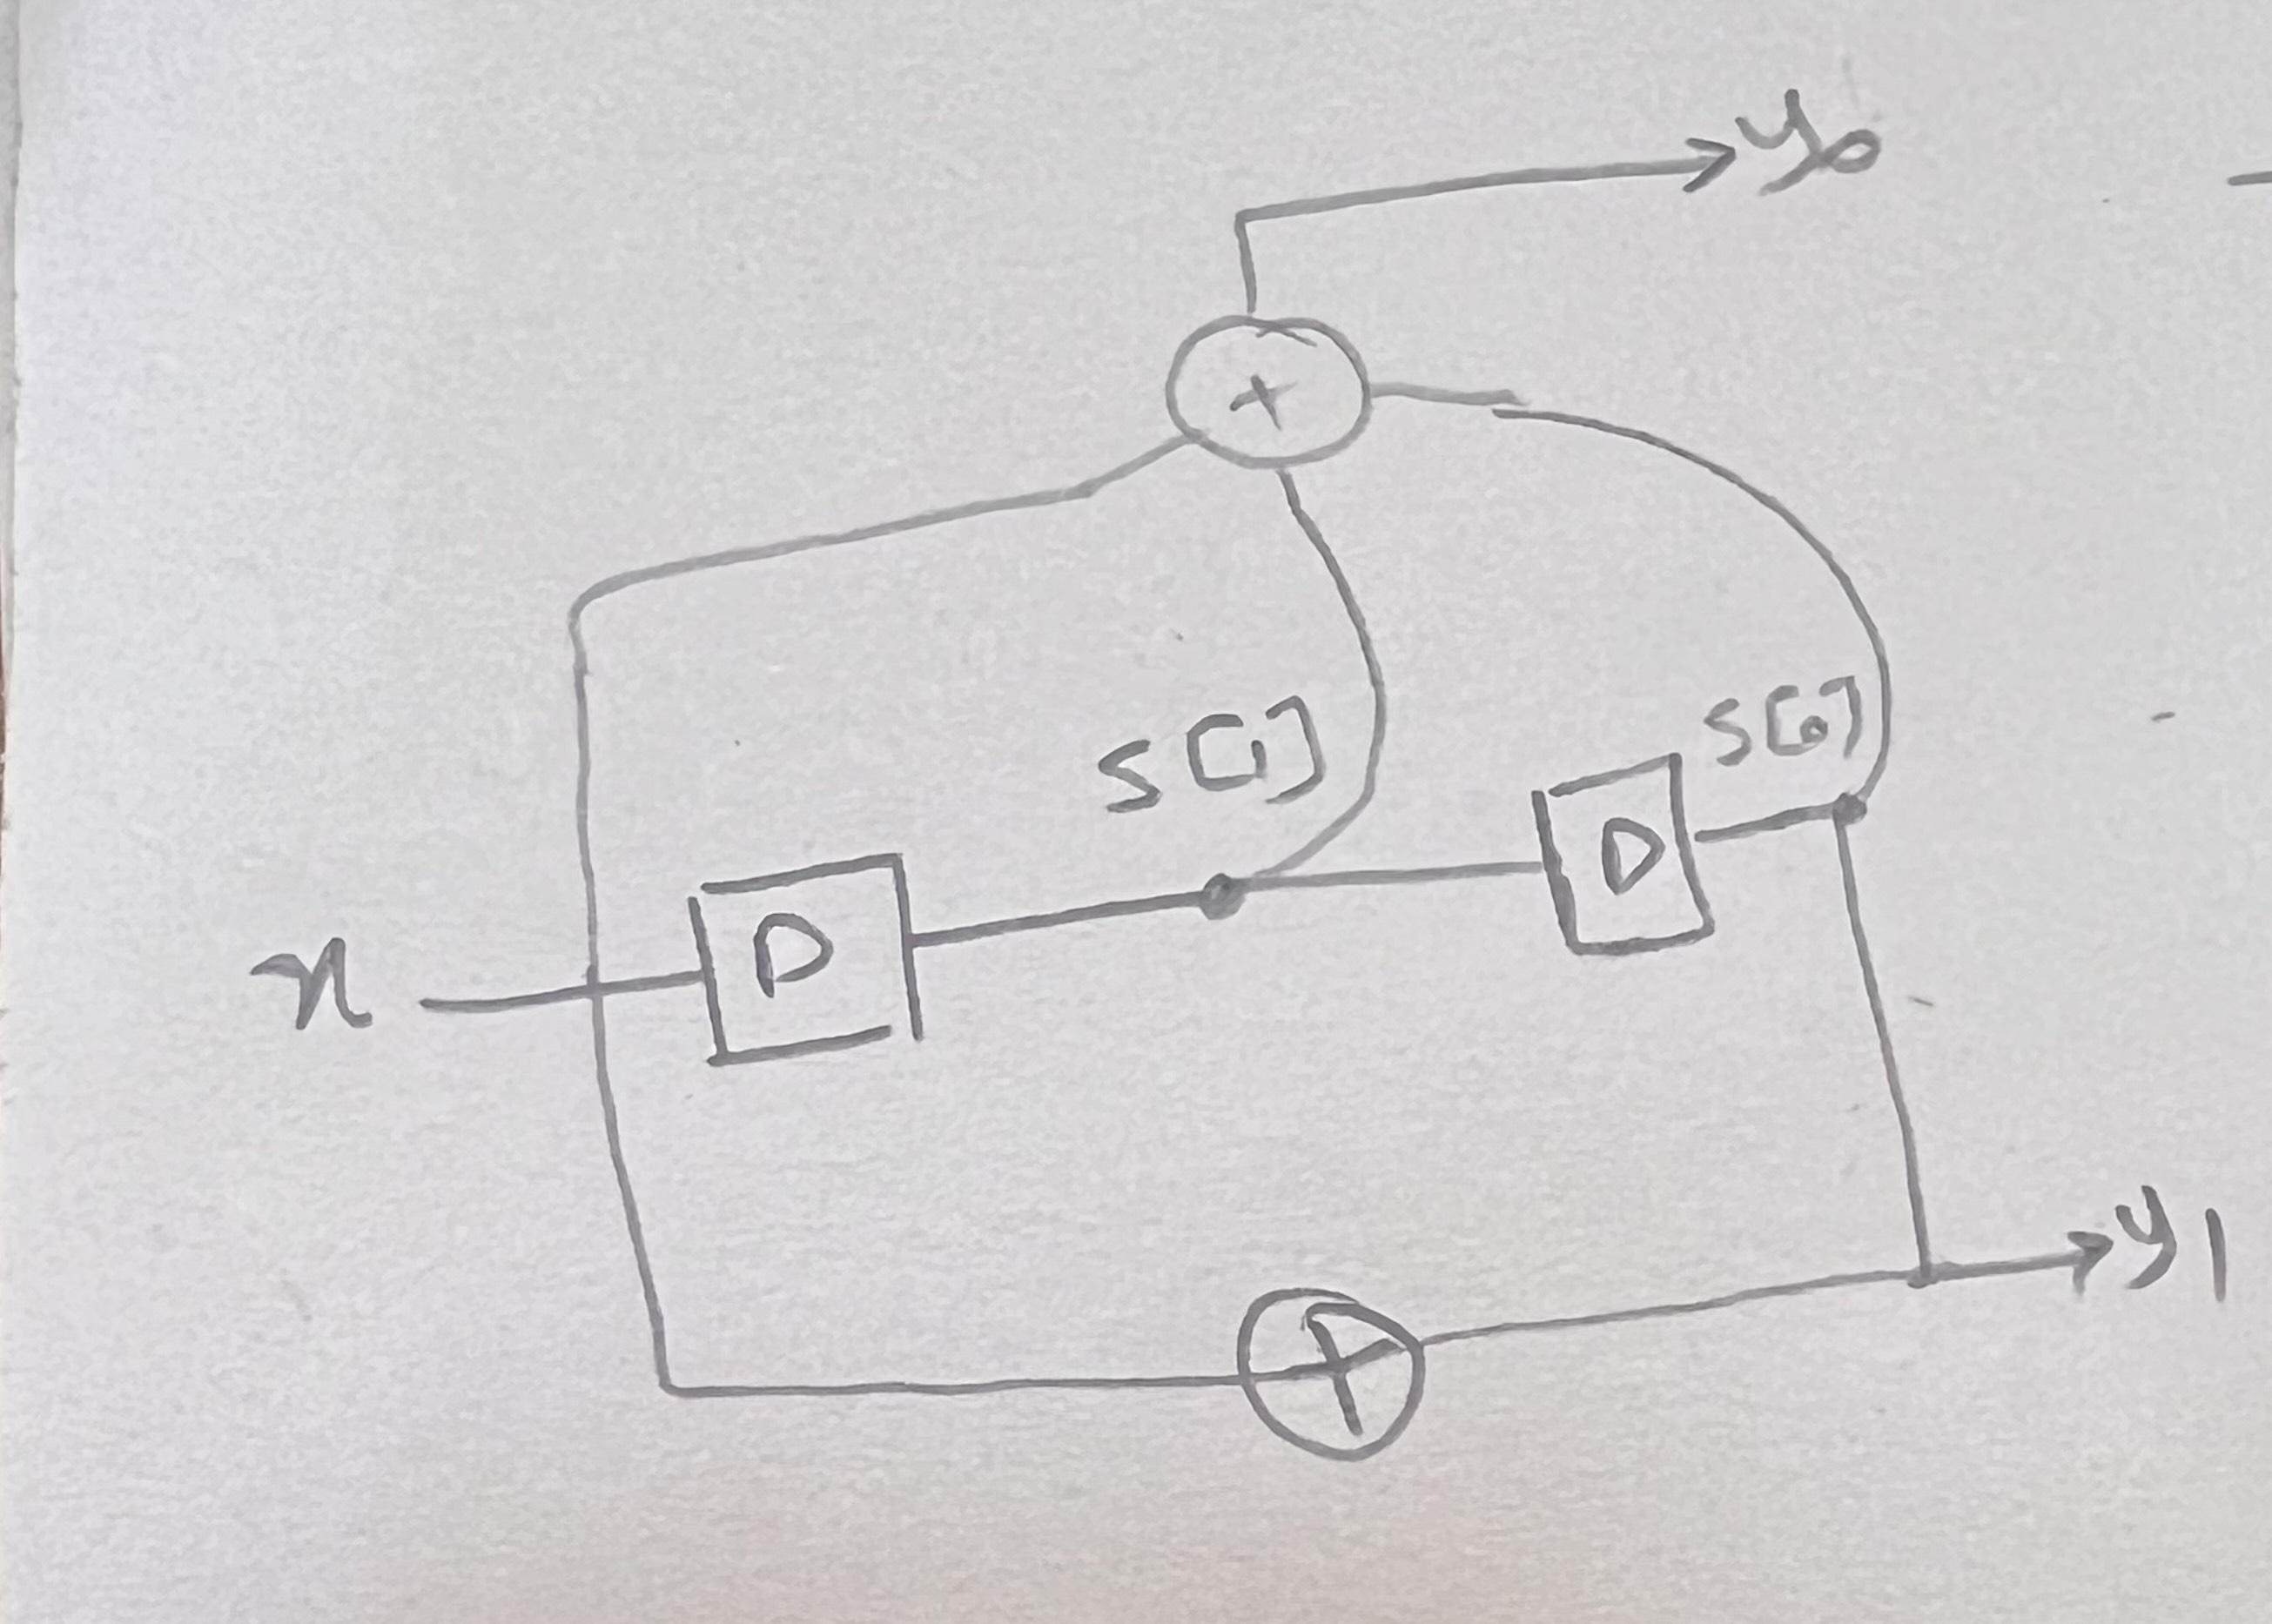 y0
+
S[1]
S[0]
D
D
x
+
y1